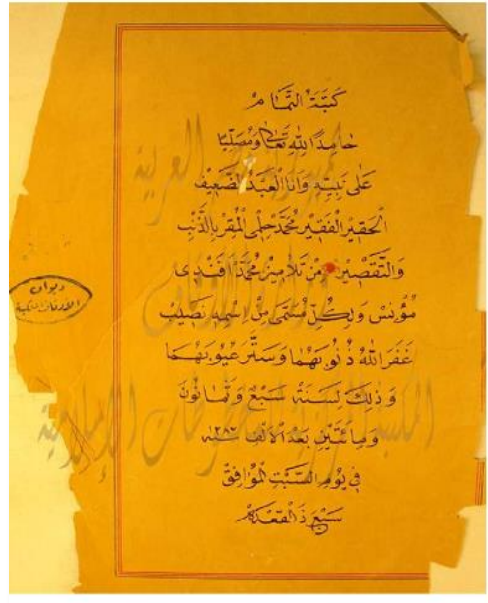 كتبة التمام
حامدًا لله تعالى ومصليًا
على نبيه وانا العبد الضعيف
الحقير الفقير محمد حلمى المقر بالذنب
والتقصير من تلاميذ محمد افندى
مؤنس ولكل مسمى من اسمه نصيب
غفر الله ذنوبهما وستر عيوبهما
وذلك لسنة سبع وثمانون
ومائتين بعد الالف سنه ١٢٨٧
فى يوم السبت الموافق
سبع ذ القعده
ديوان
الاوقاف